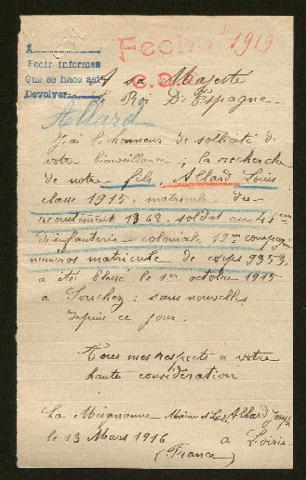 A
Pedir informes
Que se hace así
Devolver
Fecho
1919
A sa Majeste
Le Roi D'Espagne
Allard
J'ai l'honneur de sollicité de
votre bienveillance, la recherche
de notre fils, Allard Louis
classe 1915, matricule de
recrutement 1362, soldat au 41em
d'infanterie coloniale 19me compag
numeros matricule de corps 9353,
a été blessé le 1er octobre 1915
a Souchez; sans nouvelles
depuis ce jour.
Tous mes respects a votre
haute considération
La Meignanne Maine et Loire Allard Joseph
le 13 Mars 1916 a
(France)